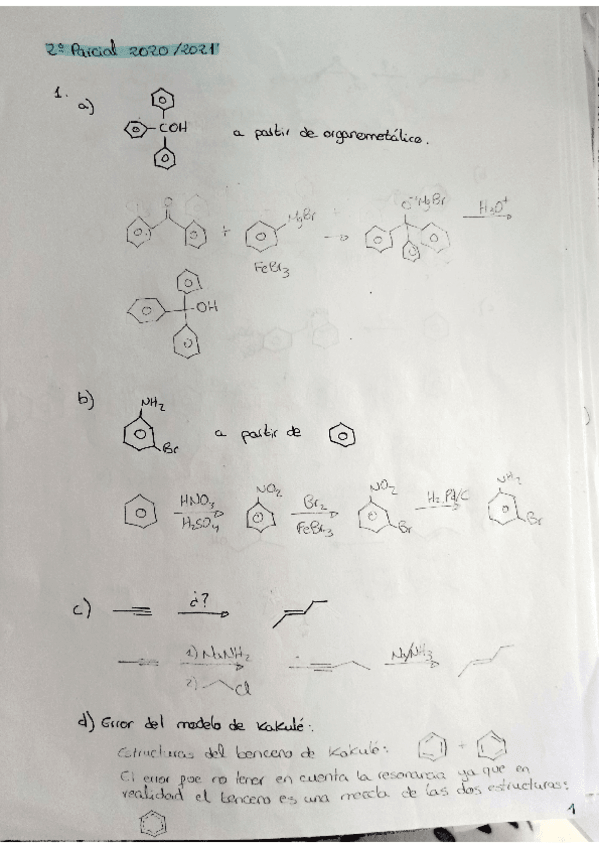 2º Parcial 2020/2021
1.
a)
COH
a partir de organometálico.
O
+
MgBr
FeBr3
O⁻⁺MgBr
H3O+
OH
b)
NH2
Br
a partir de
HNO3
H2SO4
NO2
Br2
FeBr3
NO2
Br
H2, Pd/C
NH2
Br
c)
¿?
1) NaNH2
2)
Cl
Na/NH3
d) Error del modelo de Kakulé:
Estructuras del benceno de Kakulé:
+
El error fue no tener en cuenta la resonancia ya que en
realidad el benceno es una mezcla de las dos estructuras:
1